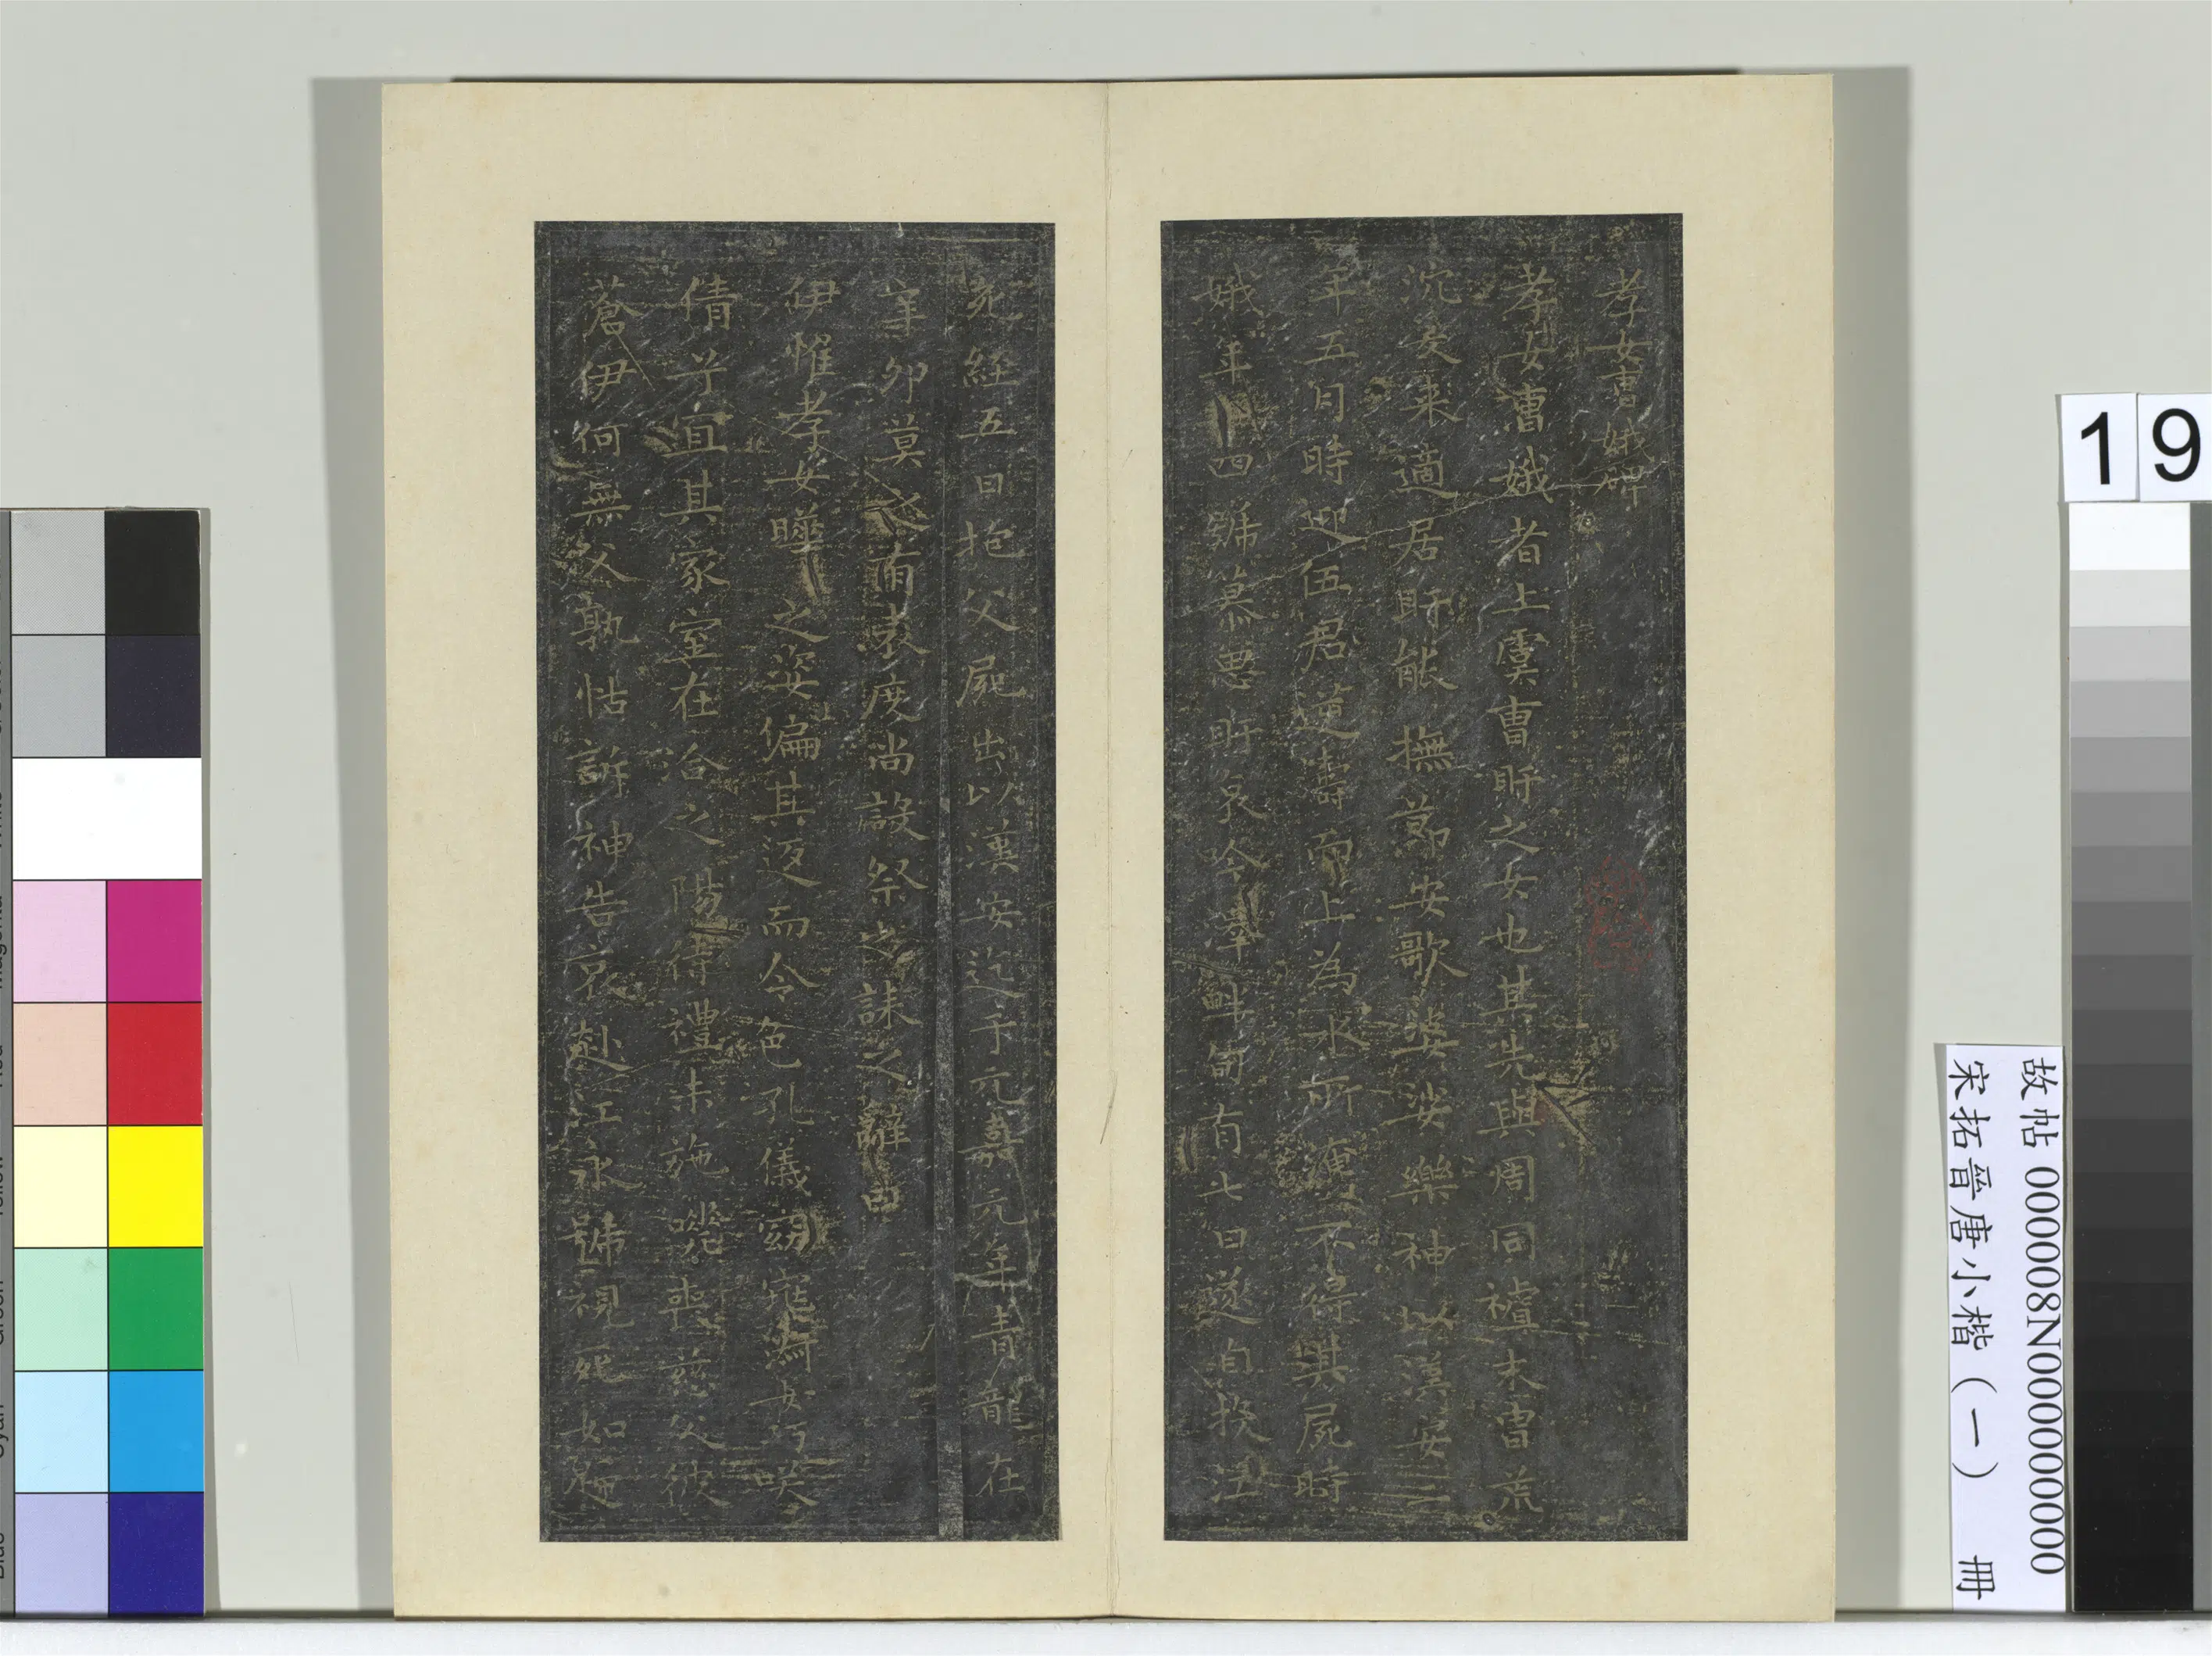 孝女曹娥碑
孝女曹娥者上虞曹盱之女也其先與周同祖末胄荒
沉爰来適居盱能撫節安歌婆娑樂神以漢安二
年五月時迎伍君逆濤而上為水所淹不得其屍時
娥年十四號慕思盱哀吟澤畔旬有七日遂自投江
死經五日抱父屍出以漢安迄于元嘉元年青龍在
辛卯莫之有表度尚設祭之誄之辭曰
伊惟孝女曄曄之姿偏其返而令色孔儀窈窕淑女巧咲
倩兮宜其家室在洽之陽待禮未施嗟喪慈父彼
蒼伊何無父孰怙訴神告哀赴江永號視死如歸
19
故帖 000008N000000000
宋拓晉唐小楷（一） 冊